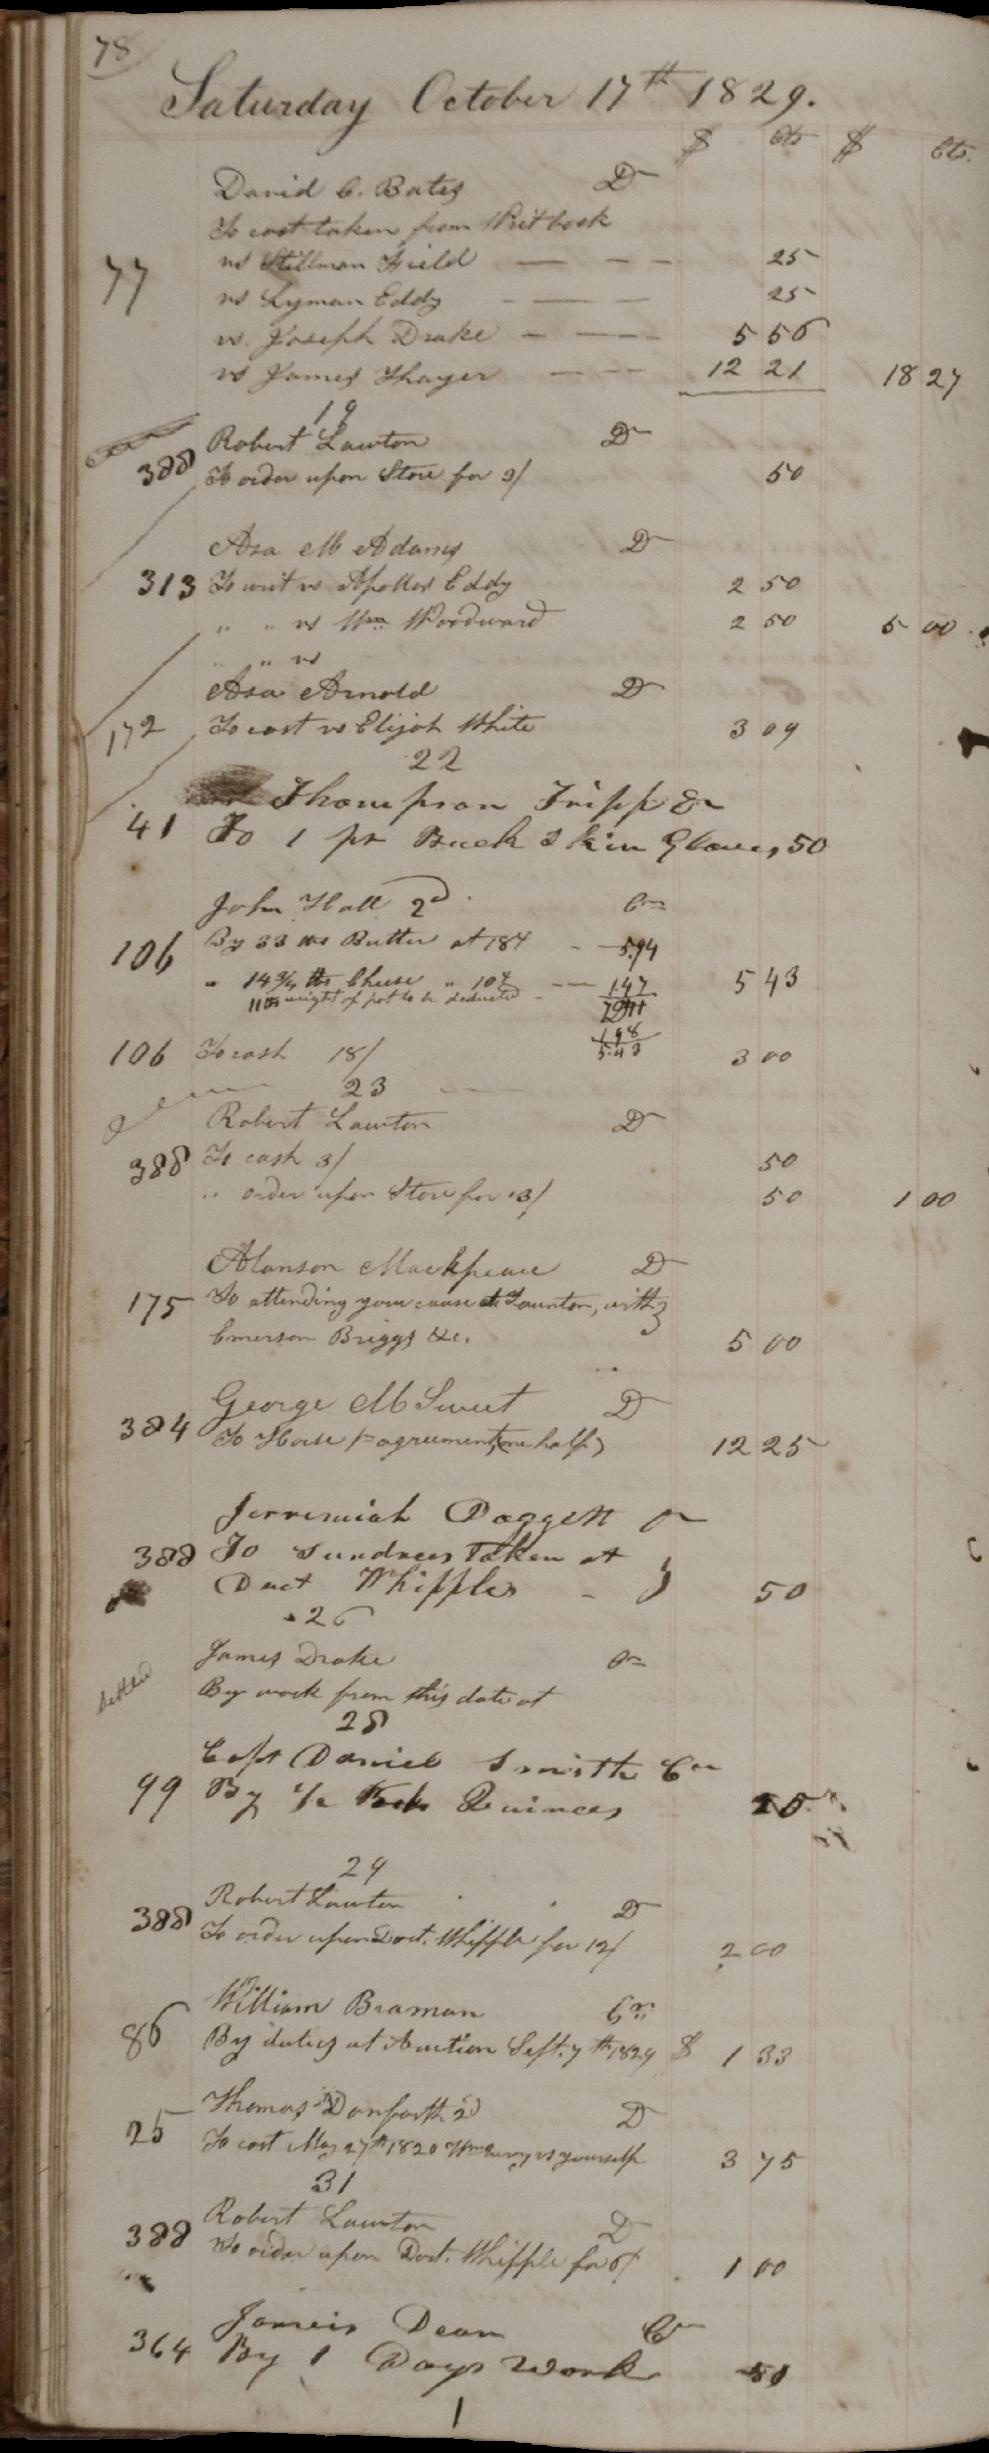 78
Saturday October 17th 1829.
$ Cts $ Cts.
David C. Bates Dr
To cost taken from Writ book
77 vs Stillman Field — — — 25
vs Lyman Eddy — — — 25
vs. Joseph Drake — — — 5 56
vs James Thayer — — — 12 21 18 27
19
Robert Lawton Dr
388 To order upon Store for 3/ 50
Asa M Adams Dr
313 To writ vs Apollos Eddy 2 50
" " vs Wm Woodward 2 50 5 00
" " vs
Asa Arnold Dr
172 To cost vs Elijah White 3 09
22
Thompson Tripp Dr
41 To 1 pr Buck Skin Gloves 50
John Hall 2d Cr
106 By 33 lbs Butter at 18¢ - — 5.94
" 14 3/4 lbs Cheese " 10¢ — — 1.47 5 43
11 lbs weight of pot to be deducted - 7.41
1.98
5.43
106 To cash 18/ 3 00
23
Robert Lawton Dr
388 To cash 3/ 50
" order upon Store for 3/ 50 1 00
Alanson Mackpeace Dr
175 To attending your cause at Taunton, with }
Emerson Briggs &c. 5 00
George M Sweet Dr
384 To Horse pr agreement, (one half) 12 25
Jerremiah Daggett Dr
388 To Sundrees Taken at }
Doct Whipples - 50
26
James Drake Cr
Settled By work from this date at
28
Capt Daniel Smith Cr
99 By 1/2 Quinces 25
29
Robert Lawton Dr
388 To order upon Doct. Whipple for 12/ 2 00
William Braman Cr
86 By duties at Auction Sept. 7th 1829 $ 1 33
Thomas Danforth 2d Dr
25 To cost May 27th 1820 Wm vs yourself 3 75
31
Robert Lawton Dr
388 To order upon Doct. Whipple for 6/ 1 00
Jameis Dean Cr
364 By 1 Days Work 50
1